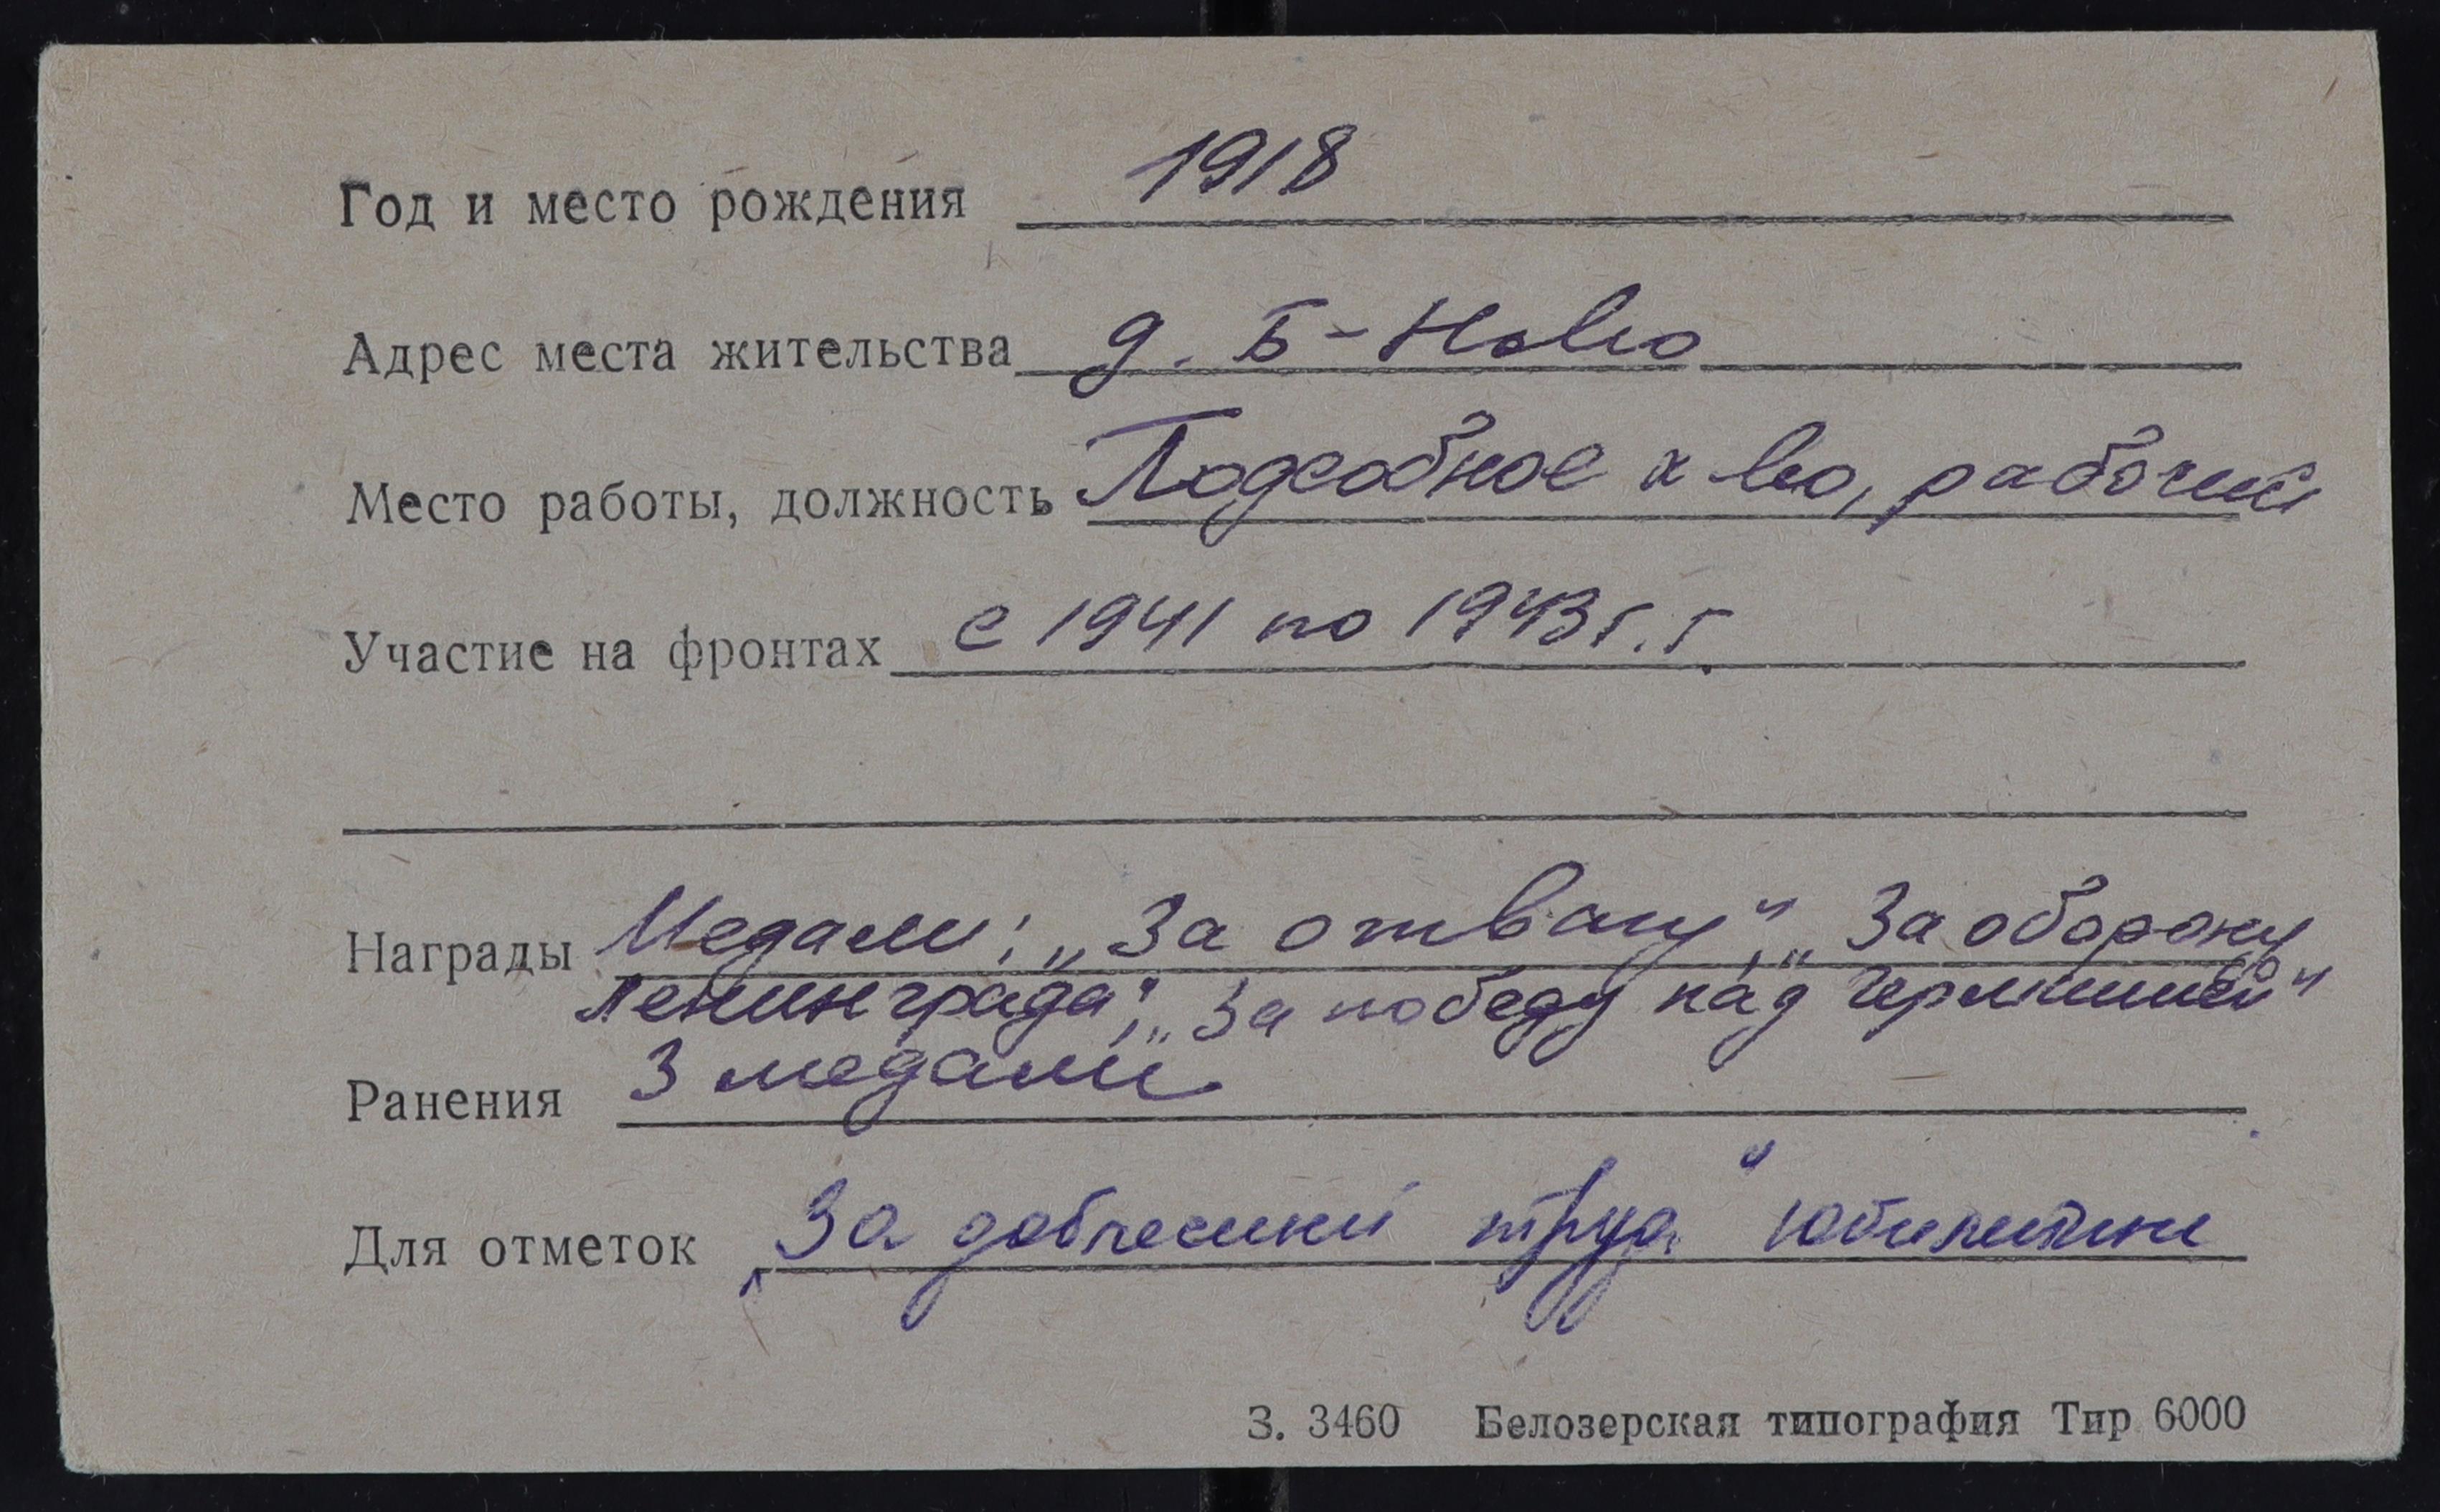 Год и место рождения 1918
Адрес места жительства д. Б-Ново
Место работы, должность Подсобное х-во, рабочий
Участие на фронтах с 1941 по 1943 г.г.
Награды Медали: „За отвагу“, „За оборону
Ленинграда“, „За победу над Германией“
Ранения 3 медали
Для отметок „За доблесный труд“ юбилейные
З. 3460 Белозерская типография Тир 6000